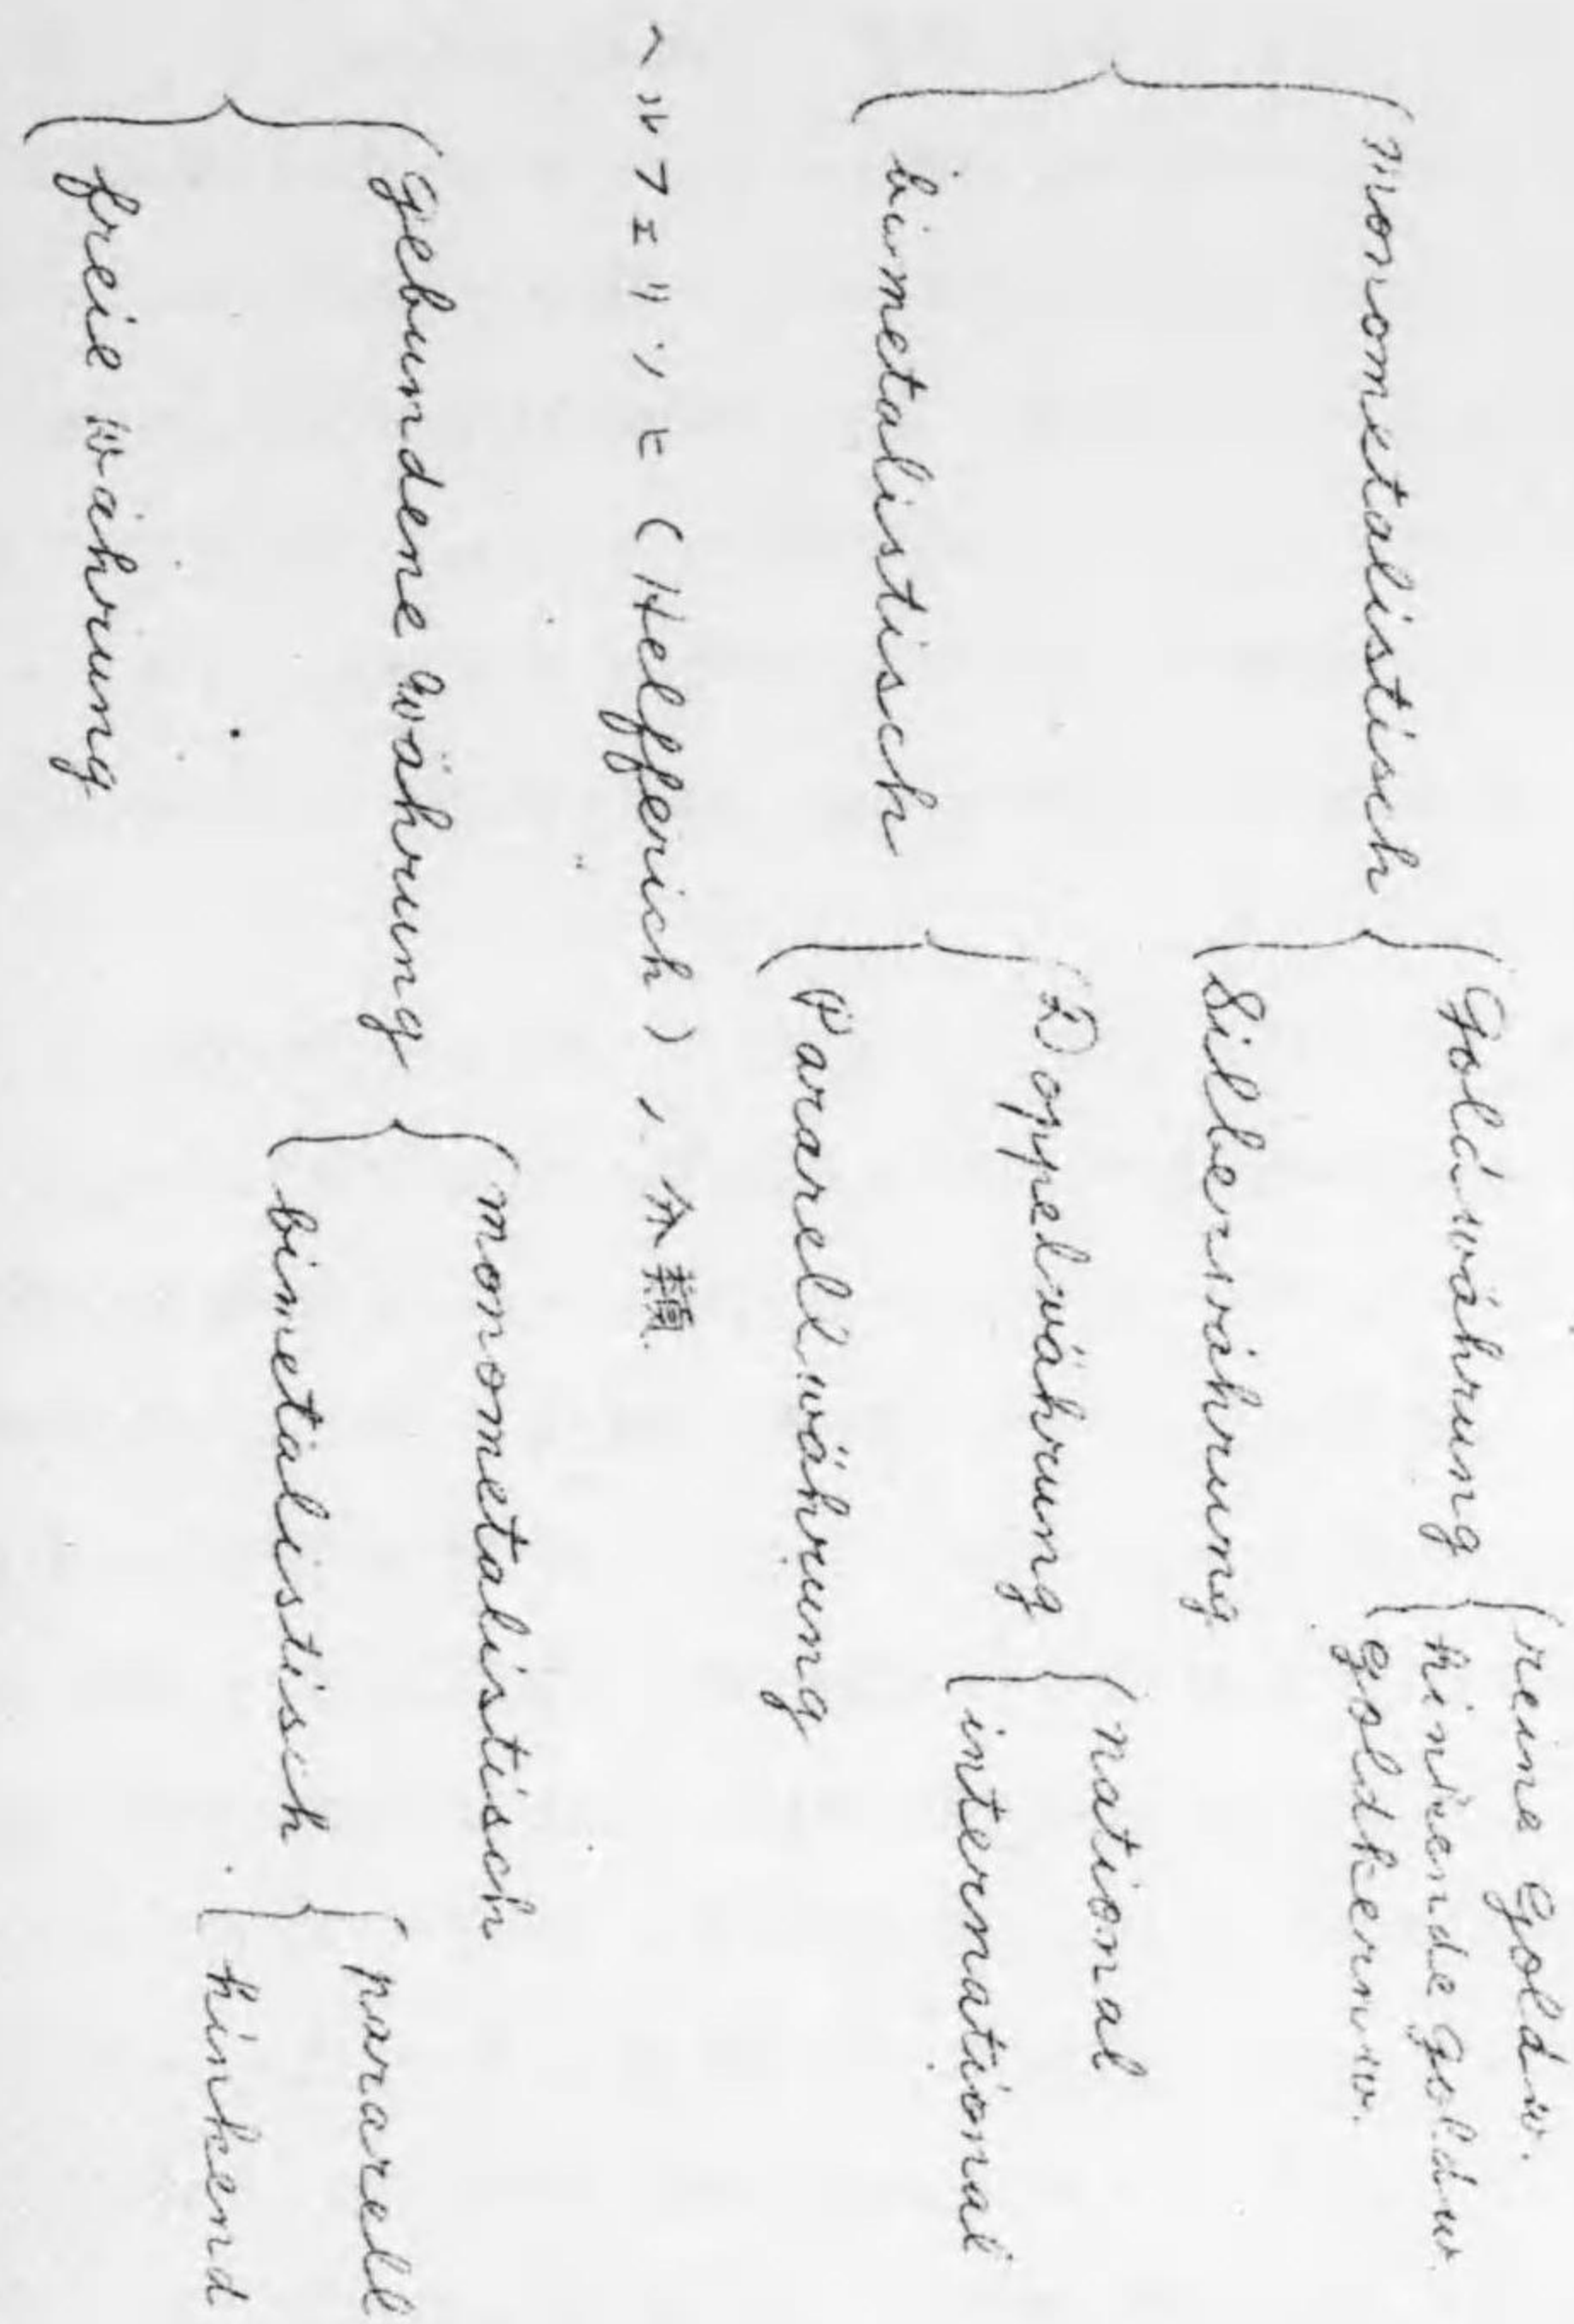 monometalistisch
Goldwährung
reine Goldw.
hinkende Goldw.
Goldkernw.
Silberwährung
bimetalistisch
Doppelwährung
national
international
Pararellwährung
ヘルフェリッヒ (Helfferich) ノ分類
gebundene währung
monometalistisch
bimetalistisch
pararell
hinkend
freie währung